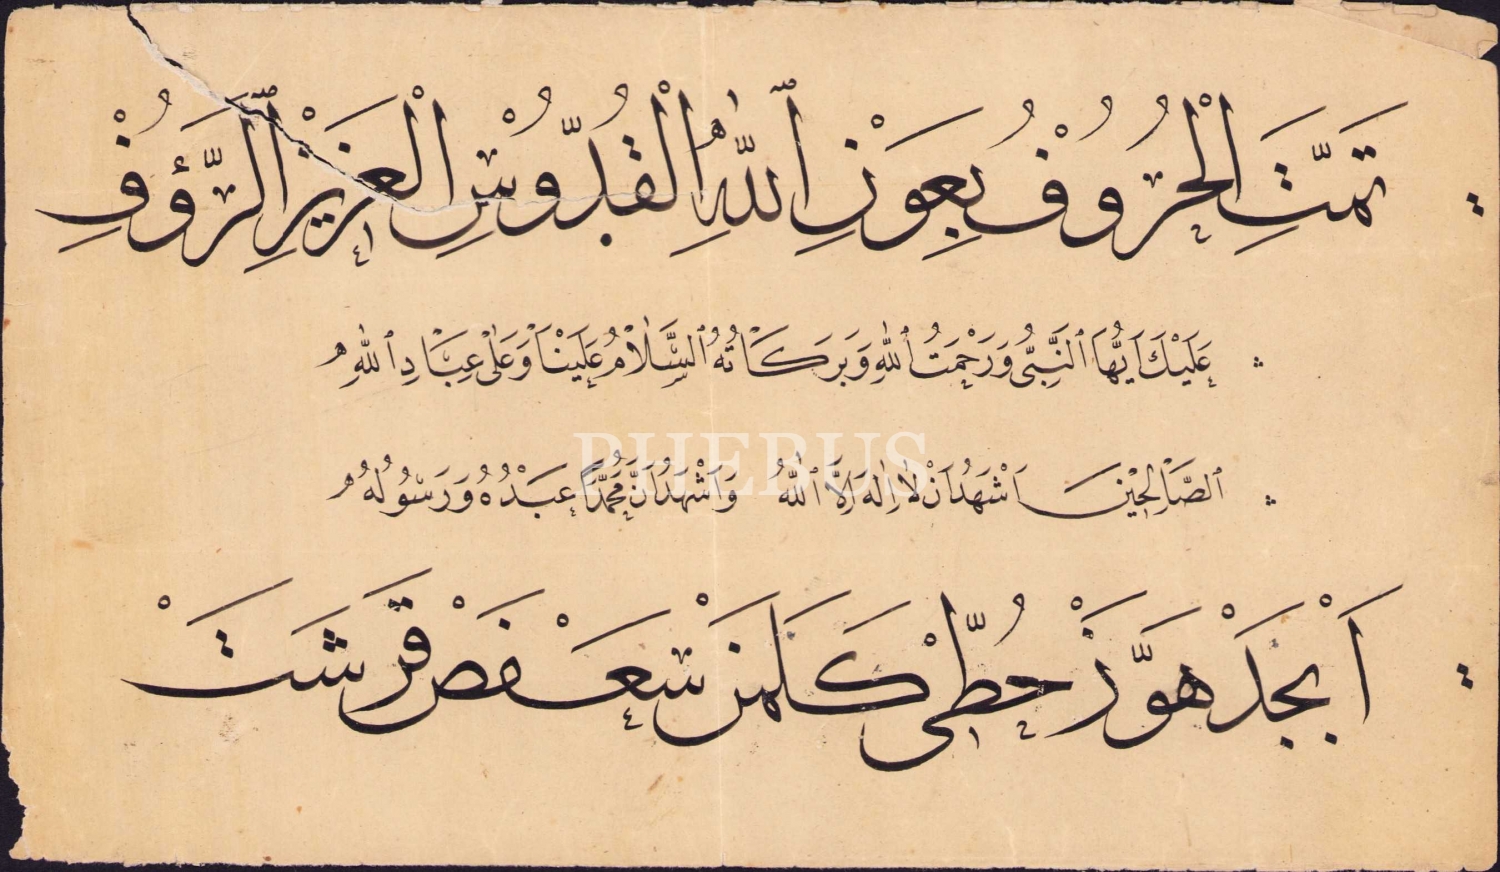 تَمَّتِ الْحُرُوفُ بِعَوْنِ ٱللّٰهِ الْقُدُّوسِ الْعَزِيزِ ٱلرَّؤُفِ
عَلَيْكَ اَيُّهَا ٱلنَّبِىُّ وَرَحْمَتُ ٱللّٰهِ وَبَرَكَاتُهُ ٱلسَّلَامُ عَلَيْنَا وَعَلٰى عِبَادِ ٱللّٰهِ
ٱلصَّالِحِينَ اَشْهَدُ اَنْ لَا اِلٰهَ اِلَّا ٱللّٰهُ وَاَشْهَدُ اَنَّ مُحَمَّدًا عَبْدُهُ وَرَسُولُهُ
PHEBUS
اَبْجَدْ هَوَّزْ حُطِّى كَلَمَنْ سَعْفَصْ قَرَشَتْ